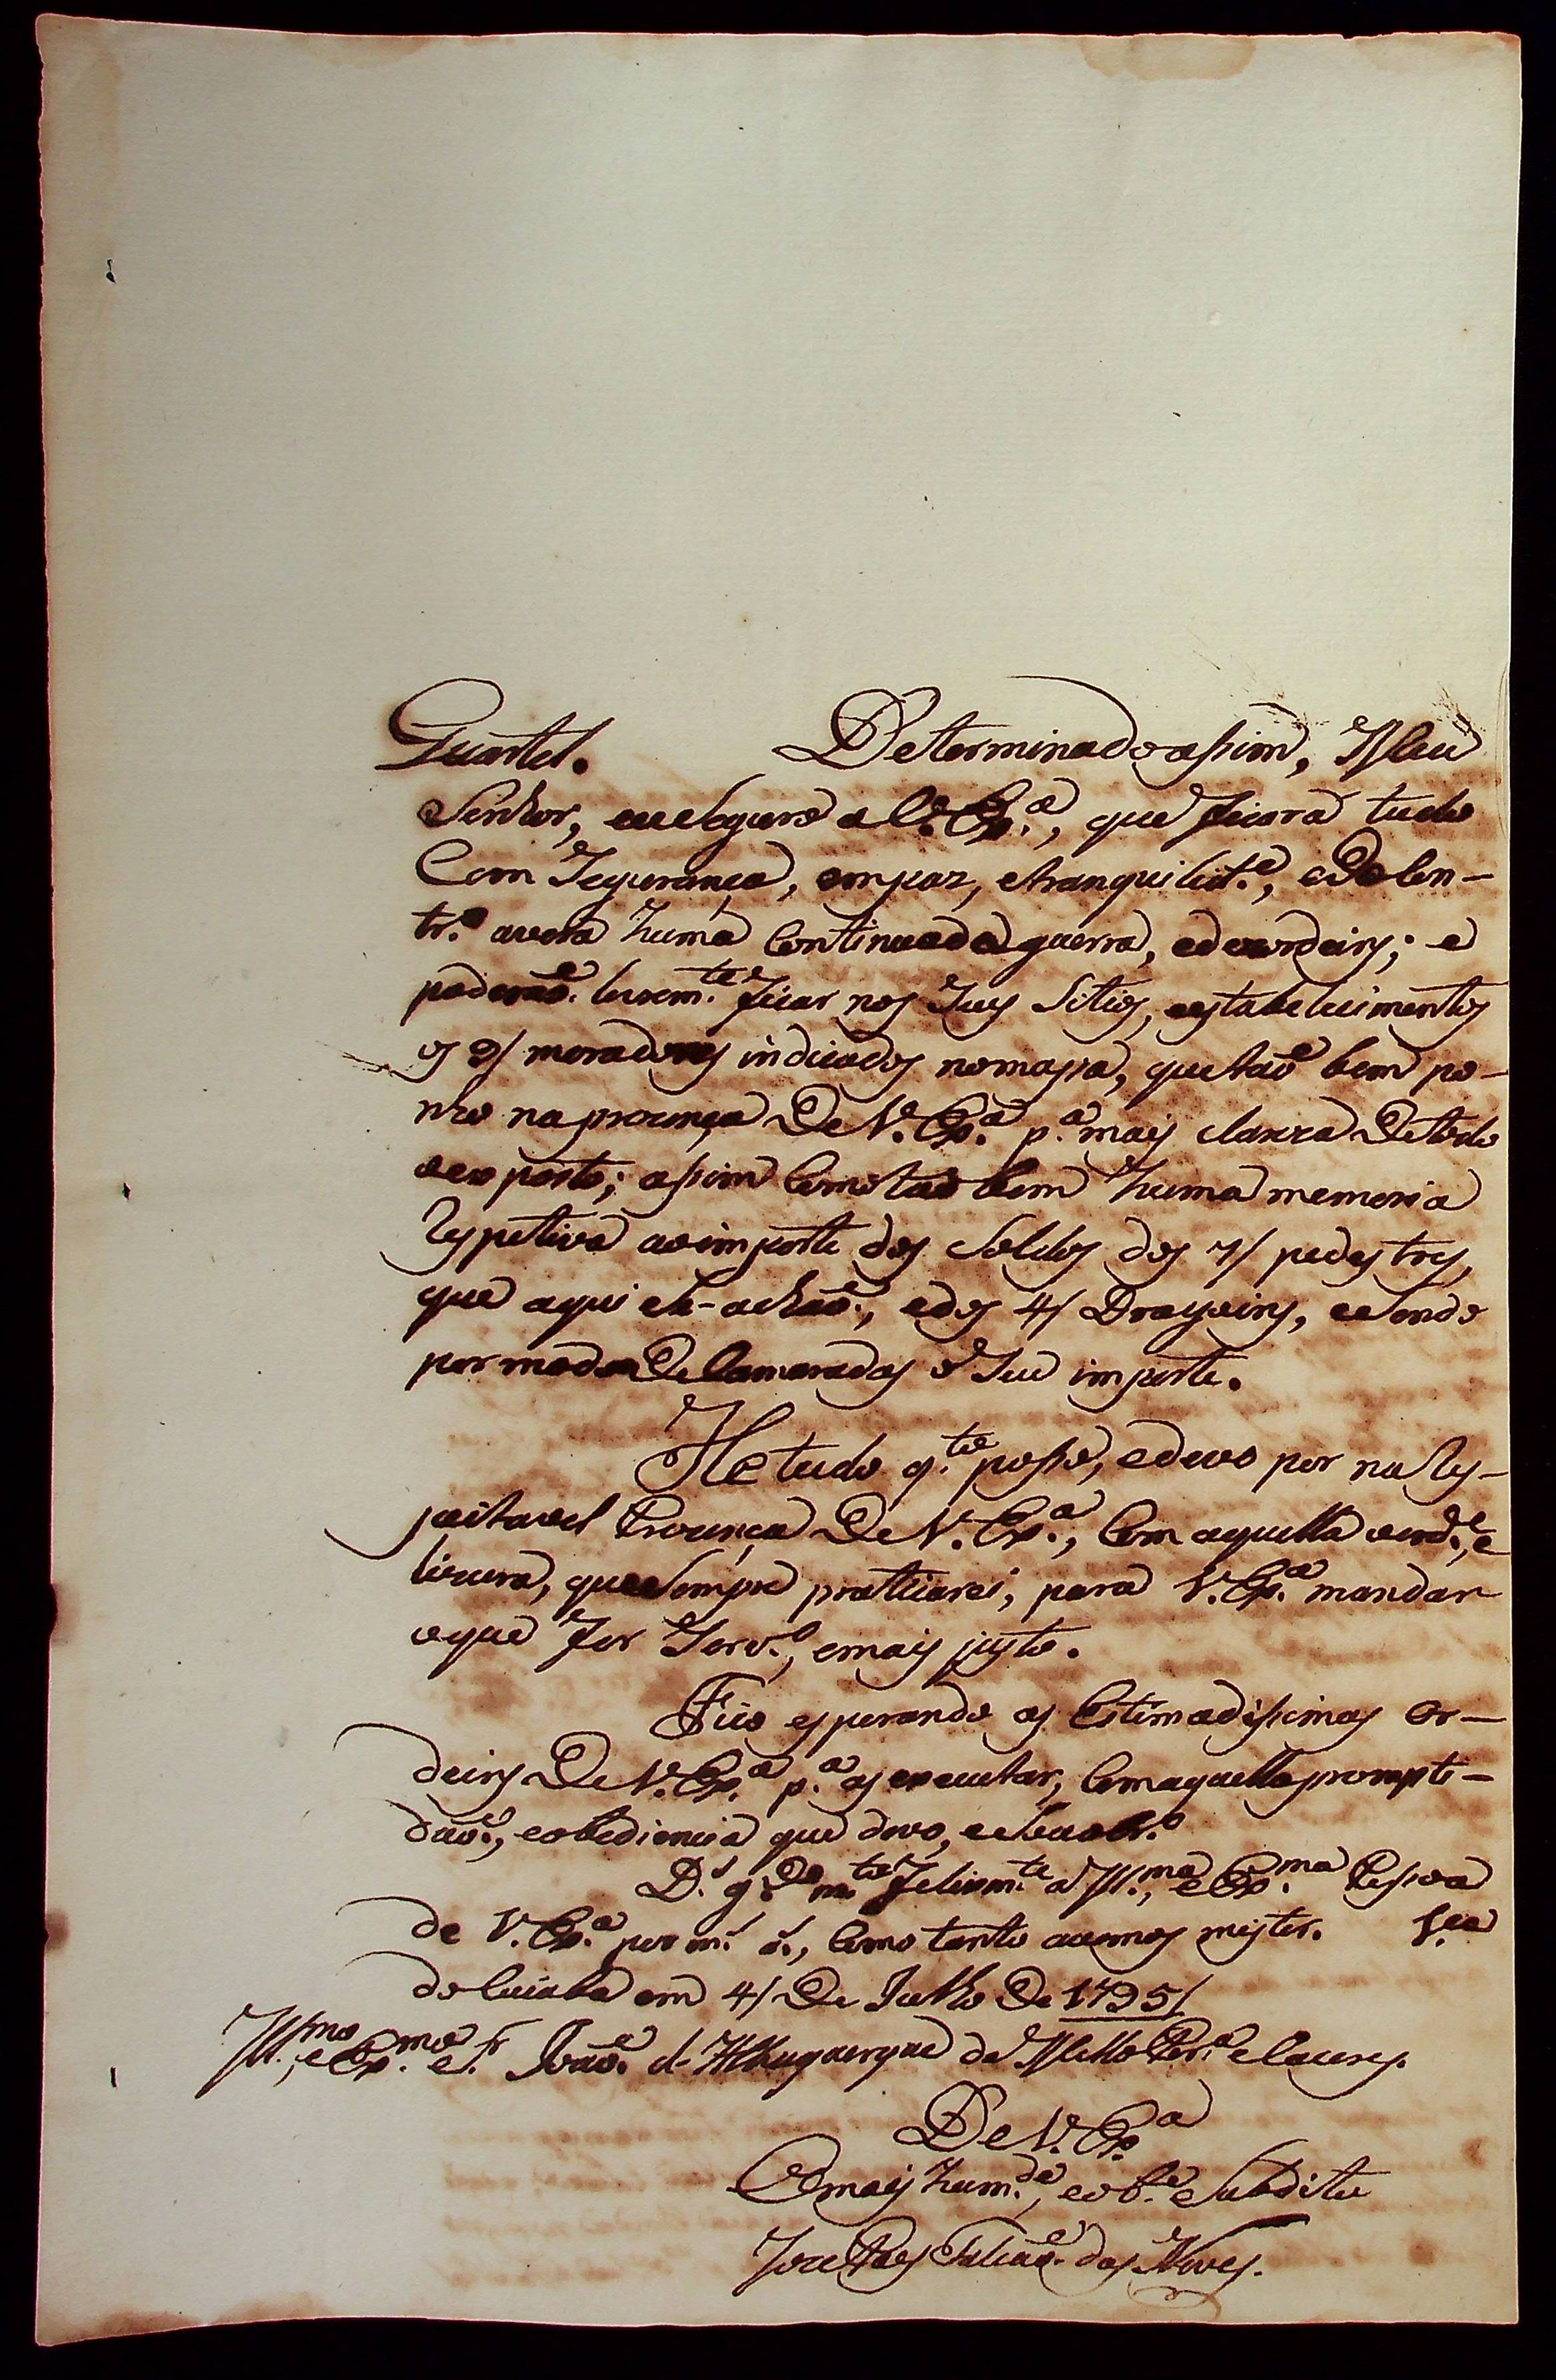 Quartel. Determinado assim, Meu
Senhor, eu seguro a V. Ex.ª, que ficará tudo
Com Segurança, em paz, e tranquilid.e, e Do Con-
tr.º averá huma Continuada guerra, e dezordeins; e
poderaõ livrem.te ficar nos Seus Sitios, e estabelecimentos
os 9/ moradores indicados no mapa, que taõ bem po-
nho na prezença De V. Ex.ª p.ª mais clareza De todo
o exposto; assim Como taõ bem huma memoria
Respetiva ao importe dos Soldos dos 7/ pedestres,
que aqui se-achaõ, e dos 4/ Dragoins, sendo
por modo De Camaradas o Seu importe.
He tudo q.to posso, e devo por na Res-
peitavel Prezença De V. Ex.ª, Com aquella verd.e, e
lizura, que Sempre praticarei, para V. Ex.ª mandar
o que for Serv.º, e mais justo.
Fico esperando as Estimadissimas Or-
deins De V. Ex.ª p.ª as executar, Com aquella prompti-
daõ, e obediencia que devo,
D.s g.de m.to felism.te a Ill.ma, e Ex.ma Pessoa
de V. Ex.ª por m.s a.s, Como tanto avemos mister. V.ª
do Cuiaba em 4/ De Julho De 1795/
Ill.mo, e Ex.mo S.r Joaõ d'Albuquerque de Mello Per.ª e Caceres.
De V. Ex.ª
O mais hum.de, e ob.e Subdito
Joze Paes Falcaõ das Neves.